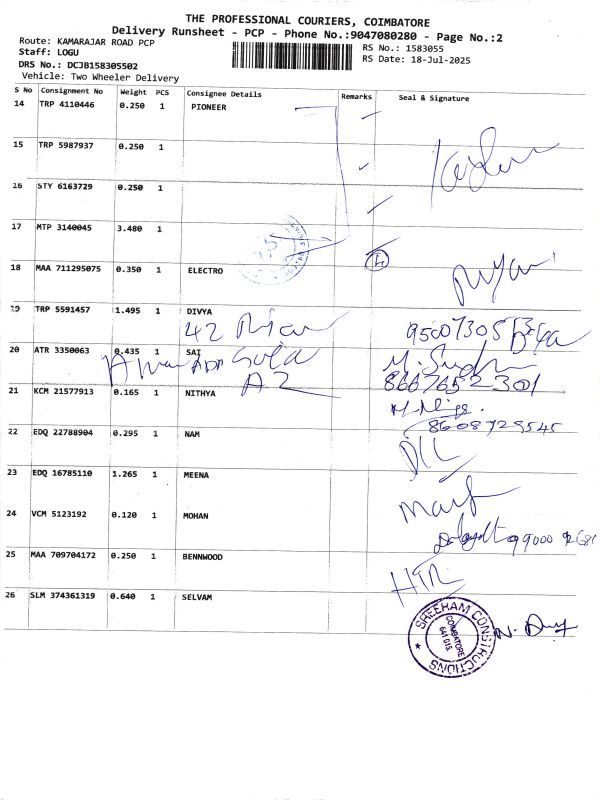 THE PROFESSIONAL COURIERS, COIMBATORE
Delivery Runsheet - PCP - Phone No.:9047080280 - Page No.:2
Route: KAMARAJAR ROAD PCP
Staff: LOGU
DRS No.: DCJB158305502
Vehicle: Two Wheeler Delivery
RS No.: 1583055
RS Date: 18-Jul-2025
S No Consignment No Weight PCS Consignee Details Remarks Seal & Signature
14 TRP 4110446 0.250 1 PIONEER
15 TRP 5987937 0.250 1
16 STY 6163729 0.250 1
17 MTP 3140045 3.480 1
4
18 MAA 711295075 0.350 1 ELECTRO
19 TRP 5591457 1.495 1 DIVYA
42
20 ATR 3350063 0.435 1 SAI
A2
8667652301
21 KCM 21577913 0.165 1 NITHYA
8608729545
22 EDQ 22788904 0.295 1 NAM
23 EDQ 16785110 1.265 1 MEENA
24 VCM 5123192 0.120 1 MOHAN
25 MAA 709704172 0.250 1 BENNWOOD
26 SLM 374361319 0.640 1 SELVAM
SREERAM CONSTRUCTIONS
COIMBATORE
641 015